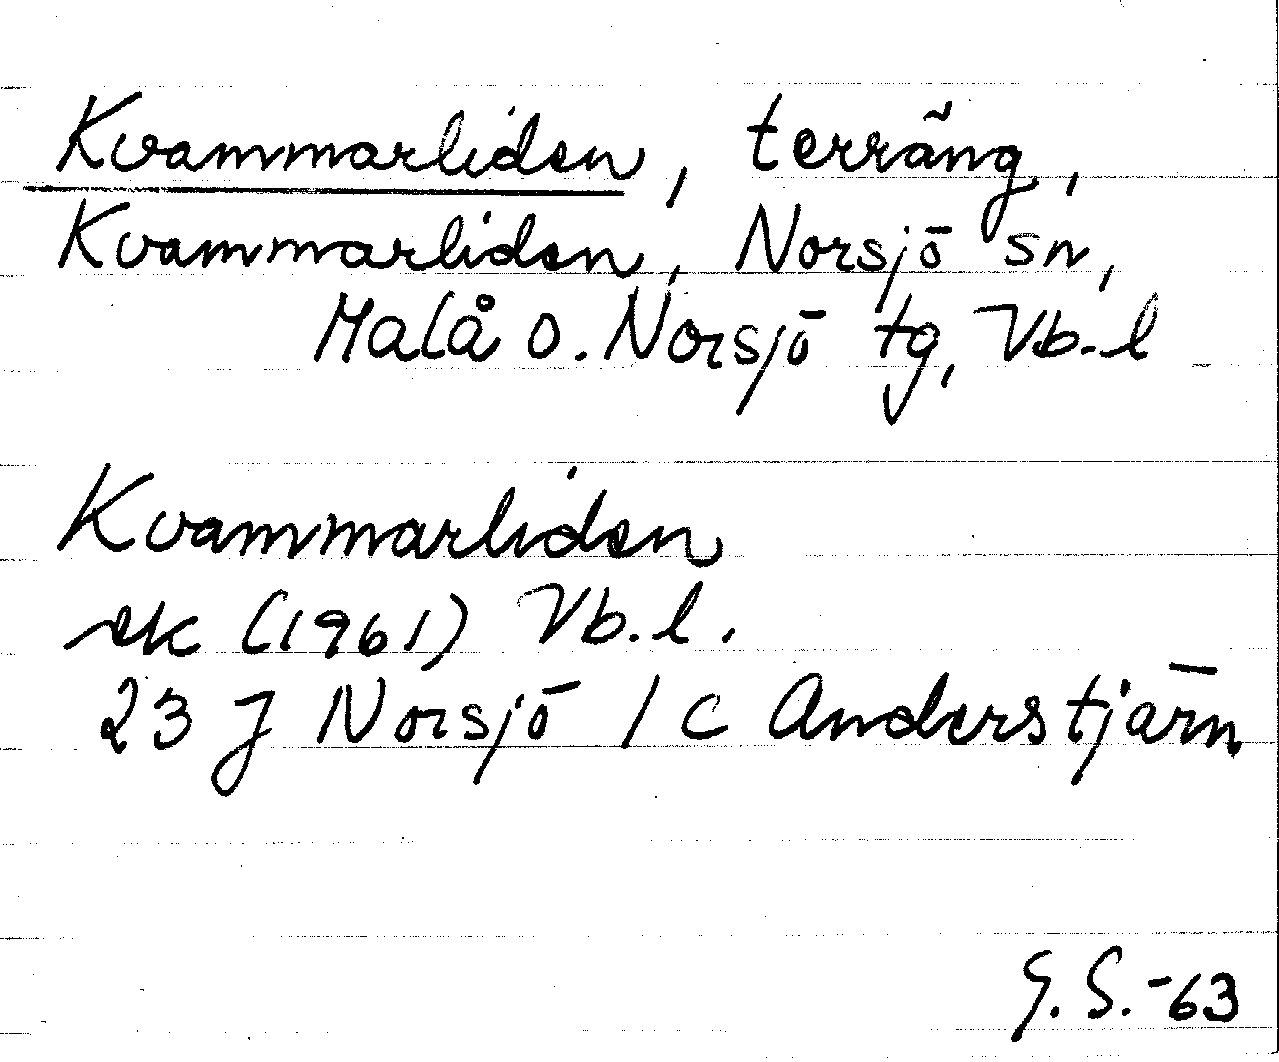 Kvammarliden, terräng,
Kvammarliden, Norsjö sn,
Malå o. Norsjö tg, Vb. l
Kvammarliden
ek (1961) Vb. l.
23 J Norsjö 1 c Anderstjärn
G. S. -63